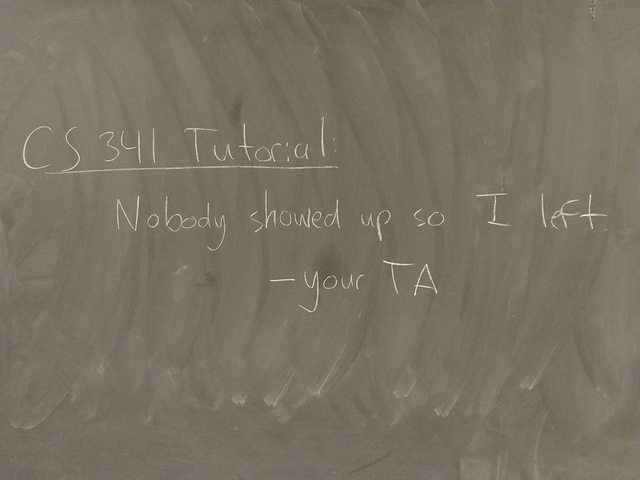 CS 341 Tutorial:
Nobody showed up so I left
- your TA